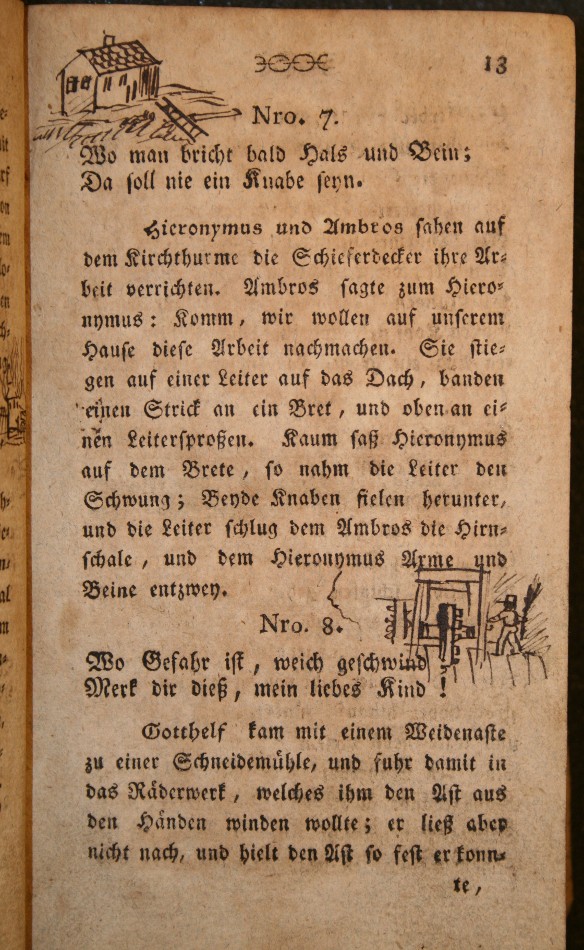 13
Nro. 7.
Wo man bricht bald Hals und Bein;
Da soll nie ein Knabe seyn.
Hieronymus und Ambros sahen auf
dem Kirchthurme die Schieferdecker ihre Ar-
beit verrichten. Ambros sagte zum Hiero-
nymus: Komm, wir wollen auf unserem
Hause diese Arbeit nachmachen. Sie stie-
gen auf einer Leiter auf das Dach, banden
einen Strick an ein Bret, und oben an ei-
nen Leitersproßen. Kaum saß Hieronymus
auf dem Brete, so nahm die Leiter den
Schwung; Beyde Knaben fielen herunter,
und die Leiter schlug dem Ambros die Hirn-
schale, und dem Hieronymus Arme und
Beine entzwey.
Nro. 8.
Wo Gefahr ist, weich geschwind;
Merk dir dieß, mein liebes Kind!
Gotthelf kam mit einem Weidenaste
zu einer Schneidemühle, und fuhr damit in
das Räderwerk, welches ihm den Ast aus
den Händen winden wollte; er ließ aber
nicht nach, und hielt den Ast so fest er konn-
te,